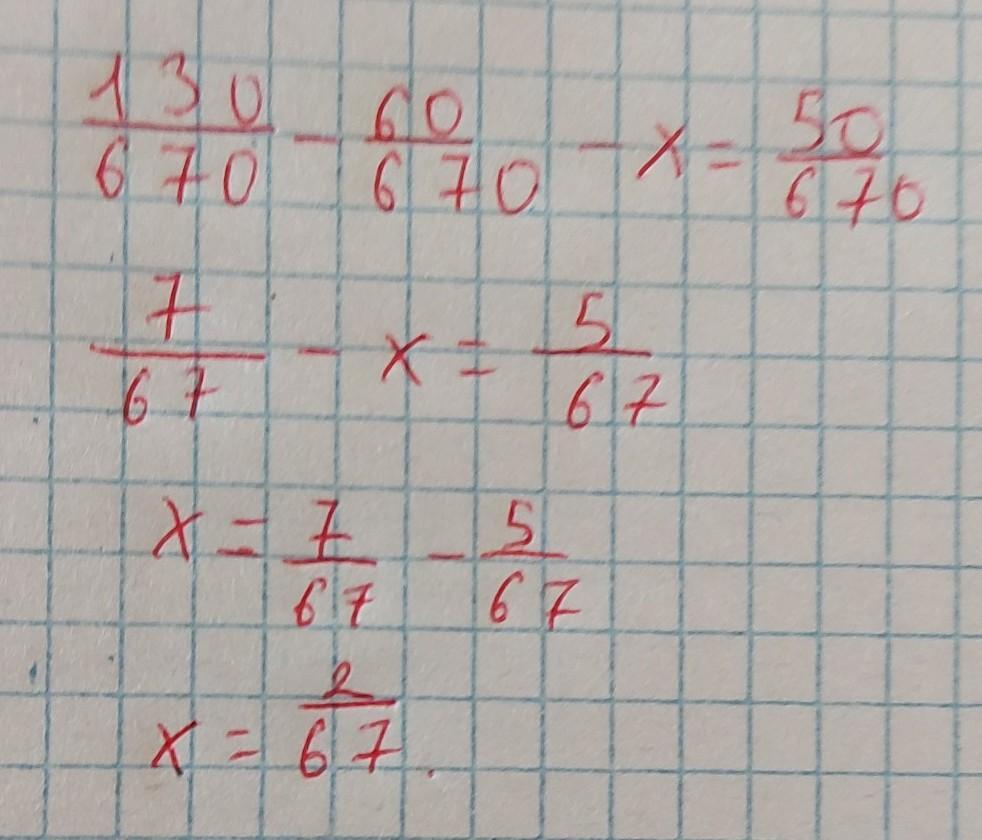 130/670 - 60/670 - x = 50/670
7/67 - x = 5/67
x = 7/67 - 5/67
x = 2/67.